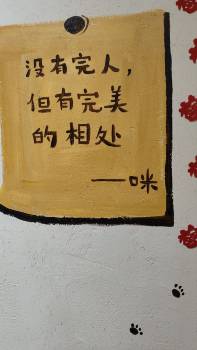 没有完人，
但有完美
的相处
——咪